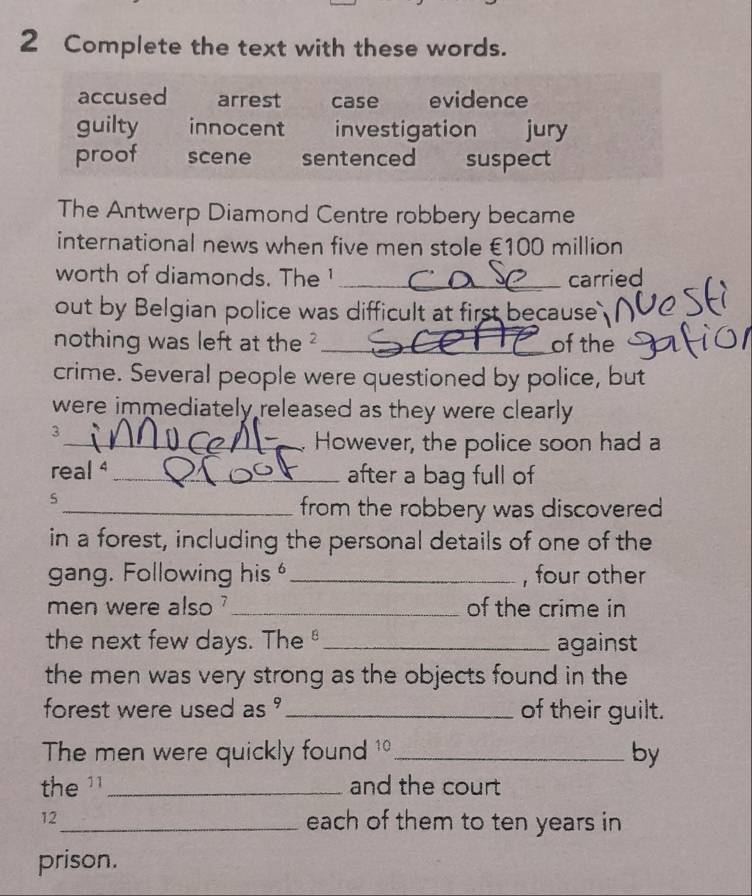 2 Complete the text with these words.
accused arrest case evidence
guilty innocent investigation jury
proof scene sentenced suspect
The Antwerp Diamond Centre robbery became
international news when five men stole €100 million
worth of diamonds. The 1 case carried
out by Belgian police was difficult at first because investi
nothing was left at the 2 scene of the gation
crime. Several people were questioned by police, but
were immediately released as they were clearly
3 innocent. However, the police soon had a
real 4 proof after a bag full of
5 from the robbery was discovered
in a forest, including the personal details of one of the
gang. Following his 6 , four other
men were also 7 of the crime in
the next few days. The 8 against
the men was very strong as the objects found in the
forest were used as 9 of their guilt.
The men were quickly found 10 by
the 11 and the court
12 each of them to ten years in
prison.